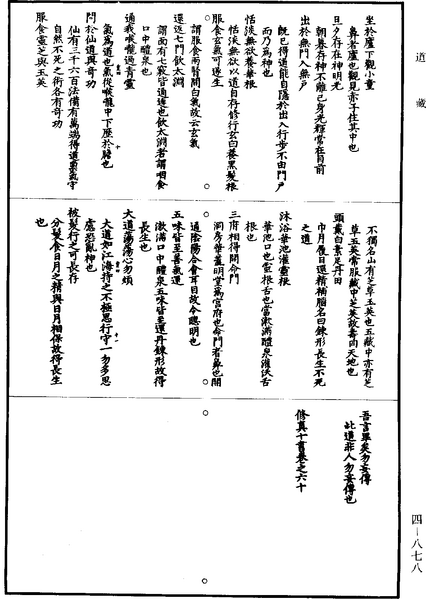 道藏
坐於廬下觀小童
鼻者廬也觀見赤子在其中也
旦夕存在神明光
朝暮存神不離己身光輝常在目前
出於無門入無戶
既已得道能自隱於出入行步不由門戶
而乃爲神也
恬淡無欲養華根
恬淡無欲以道自存修行玄白養黑髮根
服食玄氣可遂生
謂服食兩腎間白氣故云玄氣
還返七門飲太淵
謂面有七竅皆通達也飲太淵者謂咽食
口中醴泉也
通我喉嚨過青靈
氣爲道也氣從喉嚨中下歷於膽也
問於仙道與奇功
仙有三千六百法備有萬端得道者氣守
自然不死之術各有奇功
服食靈芝與玉英
不獨名山有芝草玉英也五藏中亦有芝
草玉英常服藏中芝英故壽同天地也
頭戴白素足丹田
巾月履日還精補腦名曰鍊形長生不死
之道
沐浴華池灌靈根
華池口也靈根舌也當漱滿醴泉灌沃舌
根也
三府相得開命門
洞房華蓋明堂爲宮府也命門者鼻也開
通陰陽合會耳目故令聰明也
五味皆至善氣還
漱滿口中醴泉五味皆至還丹鍊形故得
長生也
大道蕩蕩心勿煩
大道如江海持之不極思行守一勿多思
慮恐亂神也
被髮行之可長存
分髮食日月之精與日月相保故得長生
也
吾言畢矣勿妄傳
此道非人勿妄傳也
修真十書卷之六十
四－八七八